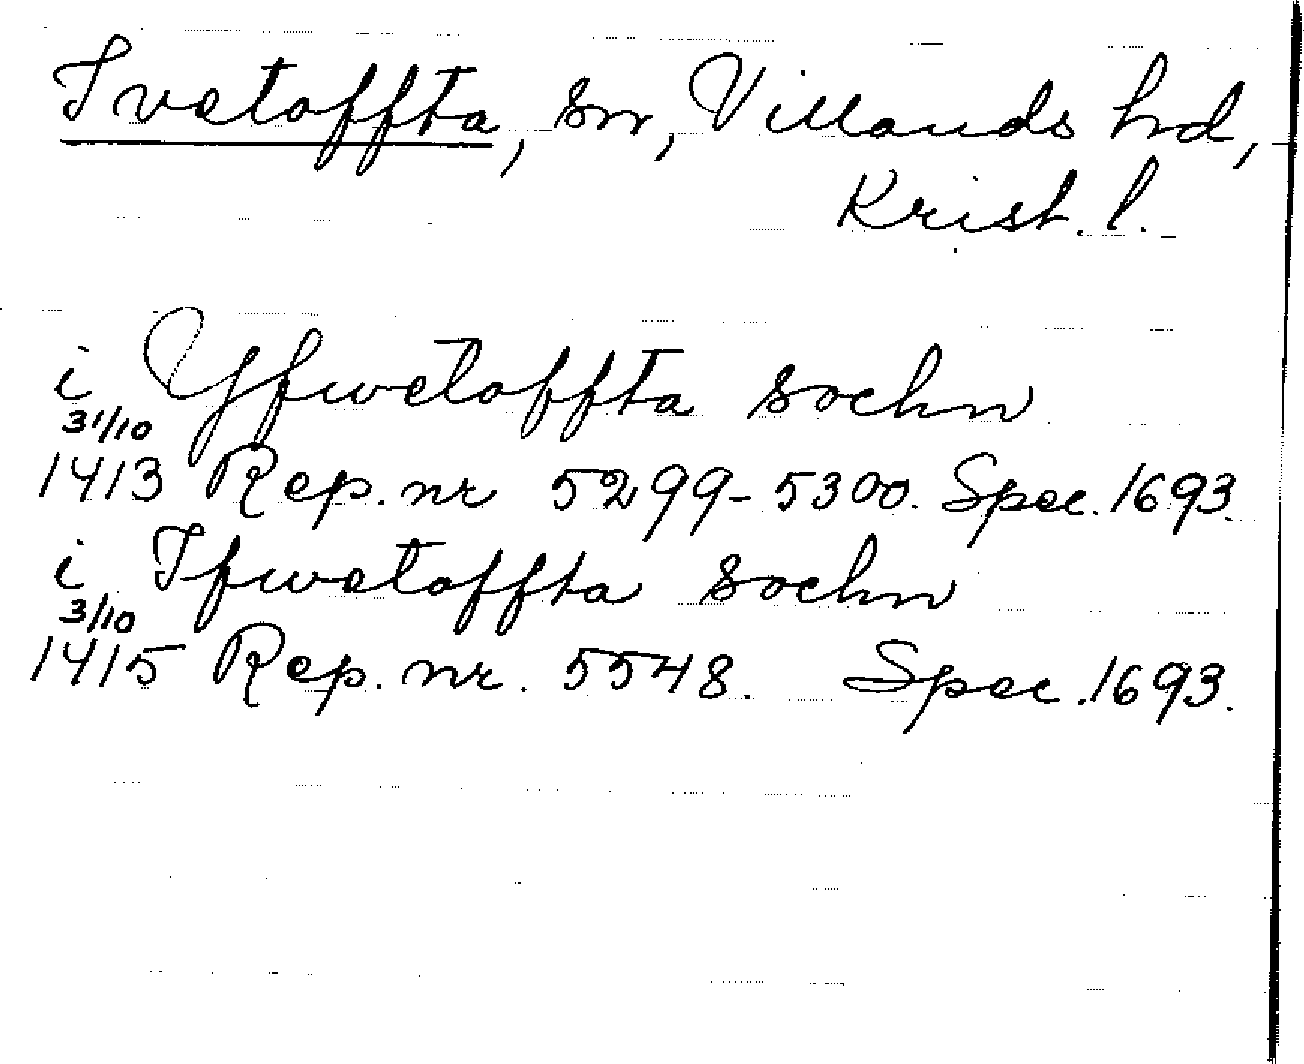 Ivetoffta, sn, Villands hd,
Krist. l.
i Yfwetoffta sochn
31/10
1413 Rep. nr 5299-5300. Spec. 1693.
i Ifwetoffta sochn
3/10
1415 Rep. nr. 5548. Spec. 1693.